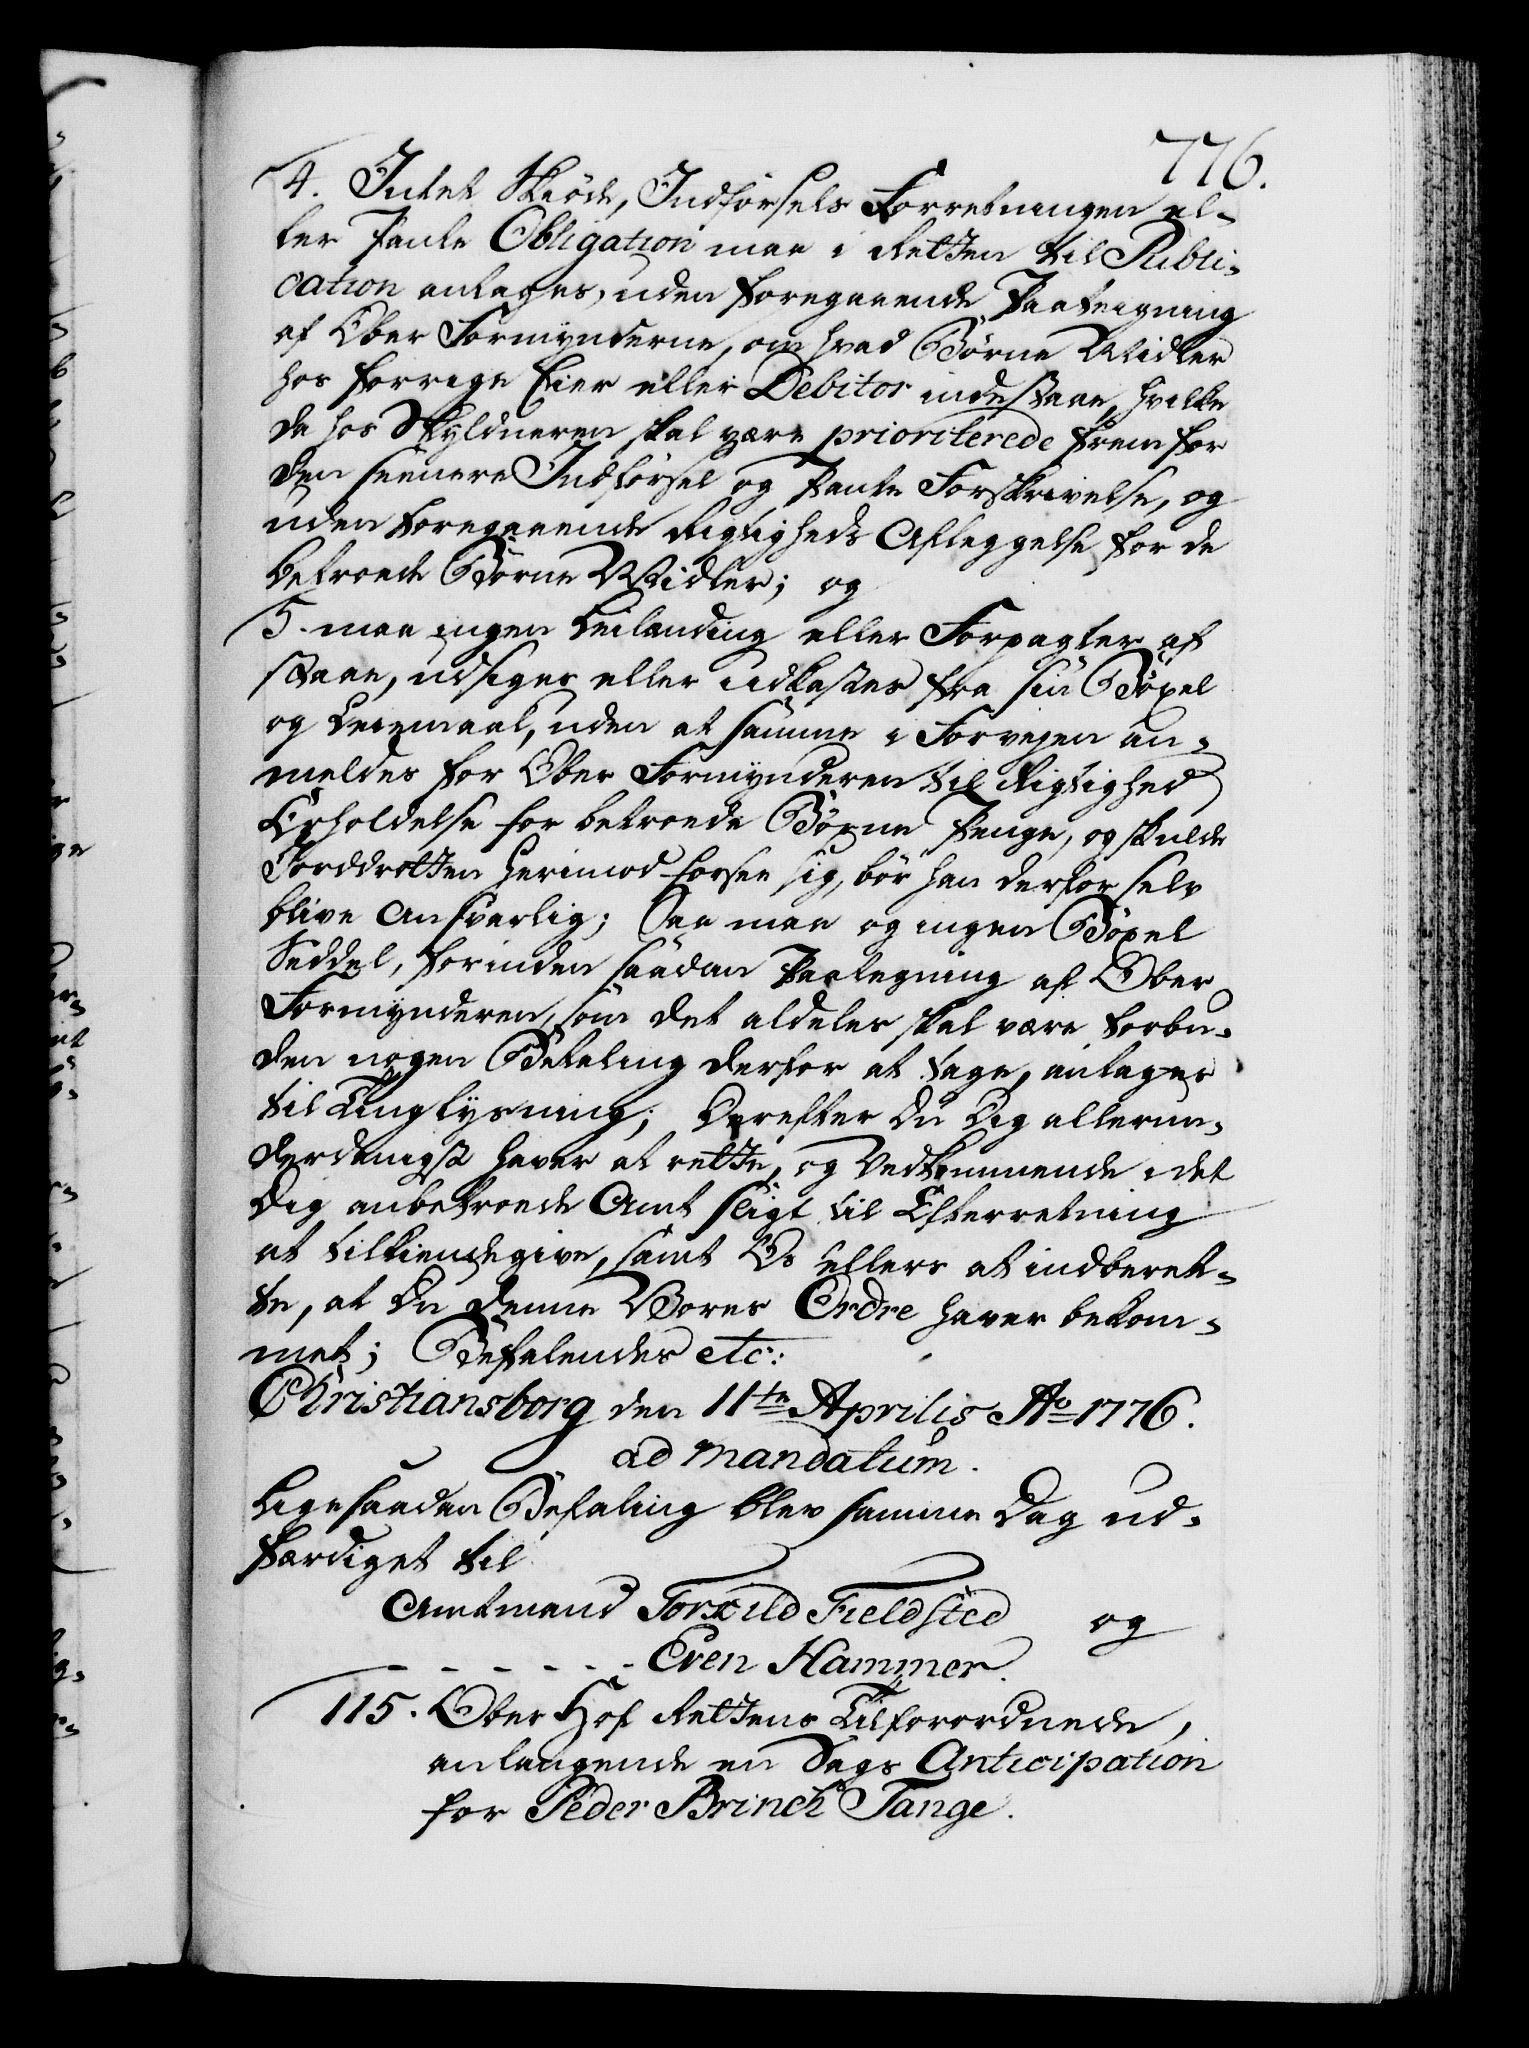 776.
4. Intet Skiöde, Indförsels Forretningen el-
ler Pante Obligation maa i Retten til Publi-
cation antages, uden foregaaende Paategning
af Ober Formynderne, om hvad Börne Midler
hos forrige Eier eller Debitor indestaae, hvilke
da hos Skyldneren skal være prioriterede frem for
den seenere Indförsel og Pante Forskrivelse, og
uden foregaaende Rigtigheds Afleggelse for de
betroede Börne Midler; og
5. maa ingen Leilænding eller Forpagter af
staae, udsiges eller udkastes fra sin Böxel
og Leiemaal, uden at samme i Forvejen an-
meldes for Ober Formynderen til Rigtighed
Erholdelse for betroede Börne Penge, og skulde
Jorddrotten herimod forsee sig, bör han derfor selv
blive Ansvarlig; Saa maa og ingen Böxel
Seddel, forinden saadan Paategning af Ober
Formynderen, som det aldeles skal være forbu-
den nogen Betaling derfor at tage, antages
til Tinglysning; Derefter Du Dig allerun-
derdanigst haver at rette, og Vedkommende i det
Dig anbetroede Amt sligt til Efterretning
at tilkiendegive, samt Os ellers at indberet-
te, at Du denne Vores Ordre haver bekom-
met; Befalendes etc:
Christiansborg den 11te Aprilis Ao 1776.
ad mandatum.
Ligesaadan Befaling blev samme Dag ud-
færdiget til
Amtmand Torkild Fieldsted og
- - - - - - Even Hammer.
115. Ober Hof Rettens Tilforordnede,
anlangende en Sags Anticipation
for Peder Brinch Tange.